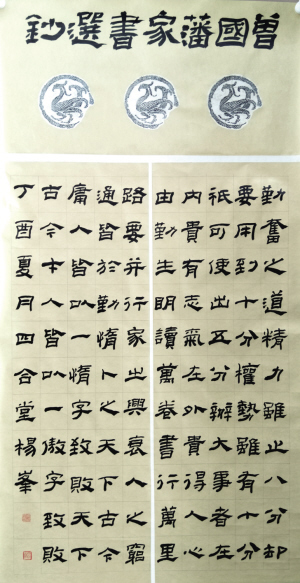 曾國藩家書選鈔
勤奮之道精力雖止八分卻
要用到十分權勢雖有十分
祇可使出五分辦大事者在
內貴有志氣在外貴得人心
由勤生明讀萬卷書行萬里
路要并行家之興衰人之窮
通皆於勤惰卜之天下古今
庸人皆以一惰字致敗天下
古今才人皆以一傲字致敗
丁酉夏月四合堂楊峯